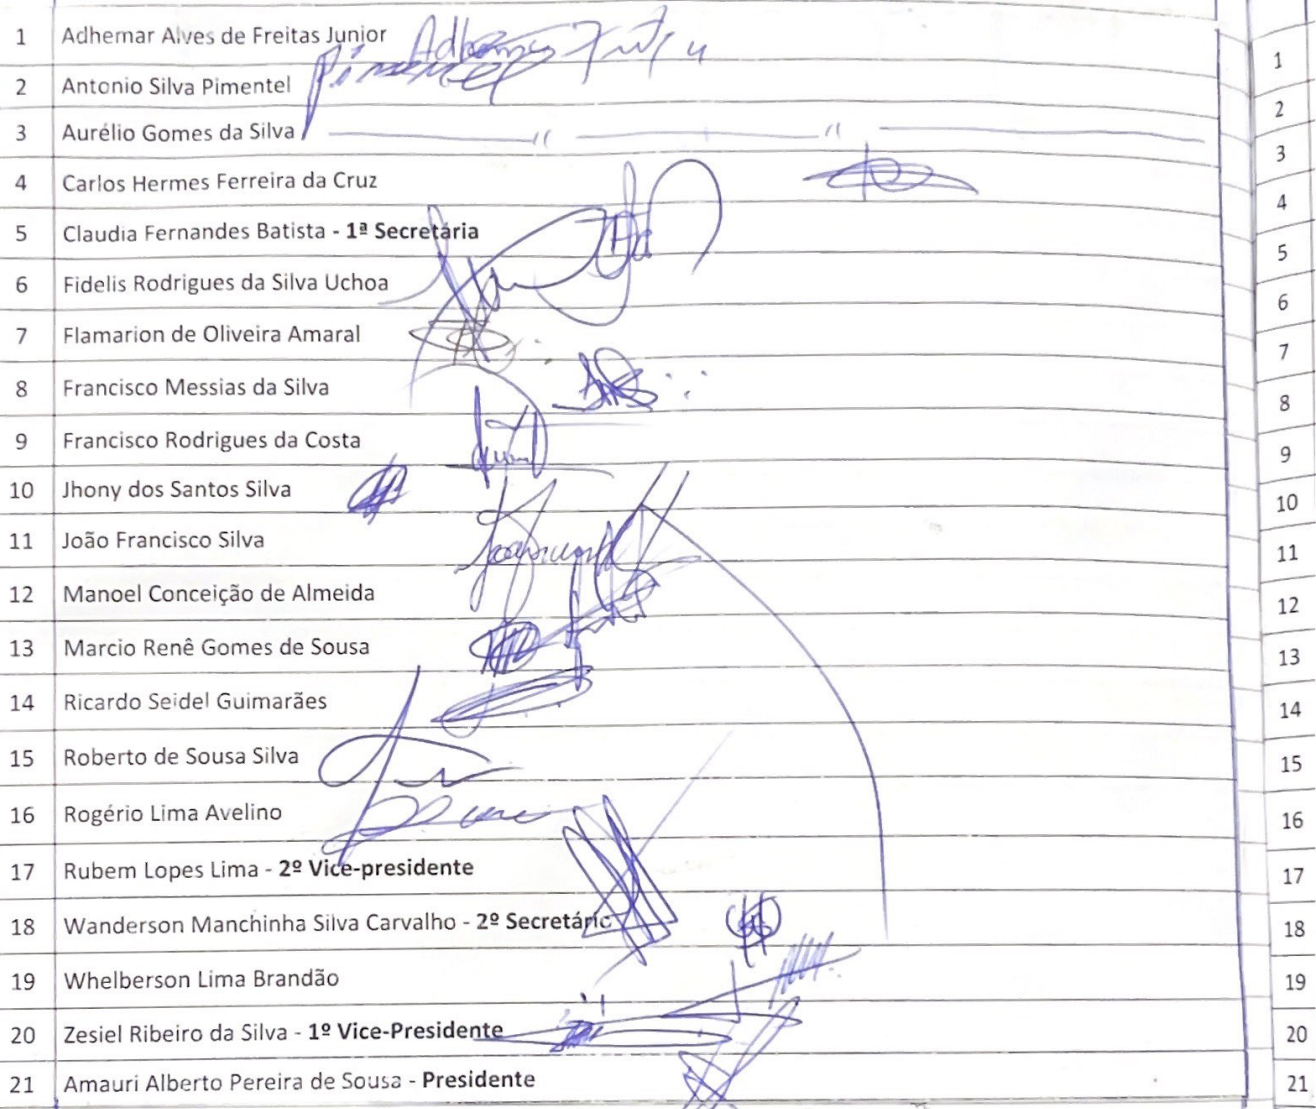 1 Adhemar Alves de Freitas Junior Adhemar Freitas 1
2 Antonio Silva Pimentel Pimentel 2
3 Aurélio Gomes da Silva " " 3
4 Carlos Hermes Ferreira da Cruz 4
5 Claudia Fernandes Batista - 1ª Secretária 5
6 Fidelis Rodrigues da Silva Uchoa 6
7 Flamarion de Oliveira Amaral 7
8 Francisco Messias da Silva 8
9 Francisco Rodrigues da Costa 9
10 Jhony dos Santos Silva 10
11 João Francisco Silva 11
12 Manoel Conceição de Almeida 12
13 Marcio Renê Gomes de Sousa 13
14 Ricardo Seidel Guimarães 14
15 Roberto de Sousa Silva 15
16 Rogério Lima Avelino 16
17 Rubem Lopes Lima - 2º Vice-presidente 17
18 Wanderson Manchinha Silva Carvalho - 2º Secretário 18
19 Whelberson Lima Brandão 19
20 Zesiel Ribeiro da Silva - 1º Vice-Presidente 20
21 Amauri Alberto Pereira de Sousa - Presidente 21